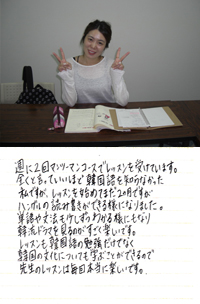 週に2回マンツーマンコースでレッスンを受けています。
全くと言っていいほど韓国語を知らなかった
私ですが、レッスンを始めてまだ2ヵ月ですが
ハングルの読み書きができる様になりました。
単語や文法も少しずつわかる様にもなり
韓流ドラマを見るのがすごく楽しいです。
レッスンも韓国語の勉強だけでなく
韓国の文化についても学ぶことができるので
先生のレッスンは毎回本当に楽しいです。